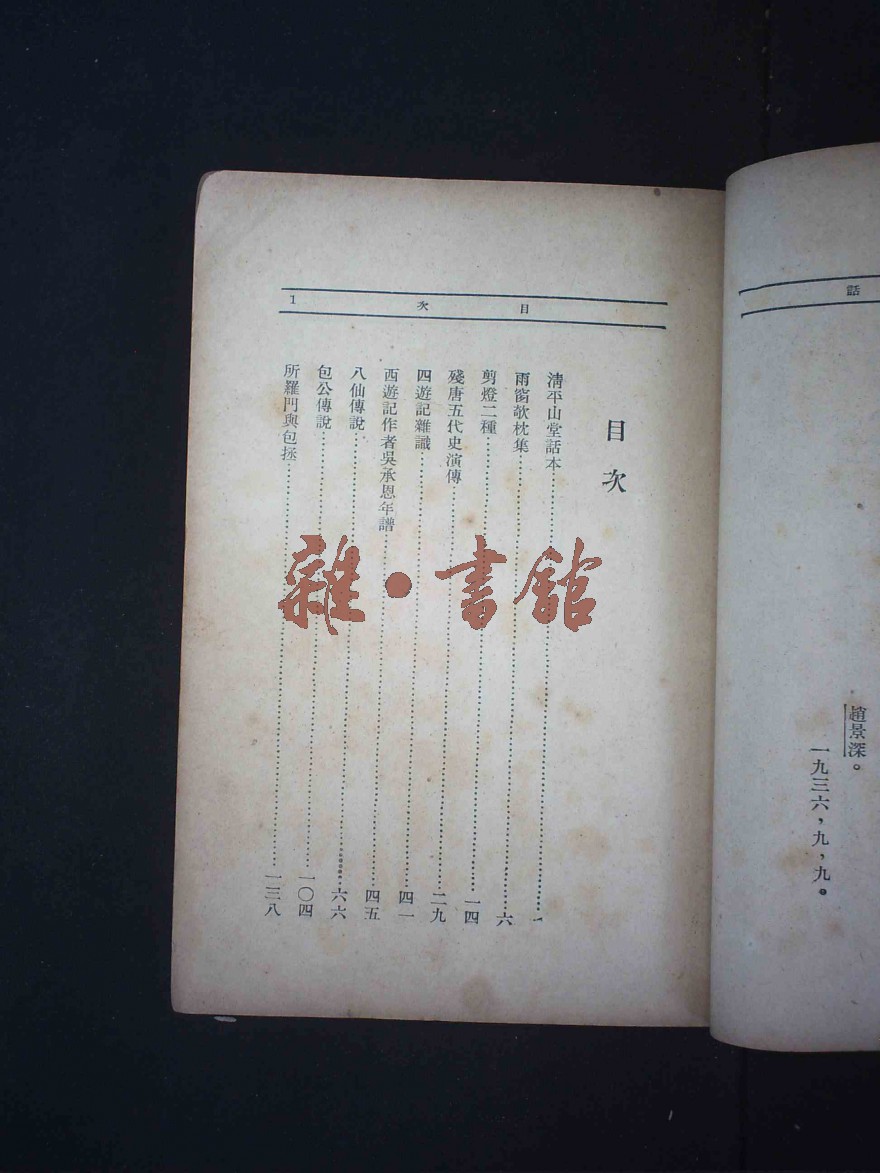 話
趙景深。
一九三六，九，九。
目次
1
目次
清平山堂話本……一
雨窗欹枕集……六
剪燈二種……一四
殘唐五代史演傳……二九
四遊記雜識……四一
西遊記作者吳承恩年譜……四五
八仙傳說……六六
包公傳說……一〇四
所羅門與包拯……一三八
雜·書館